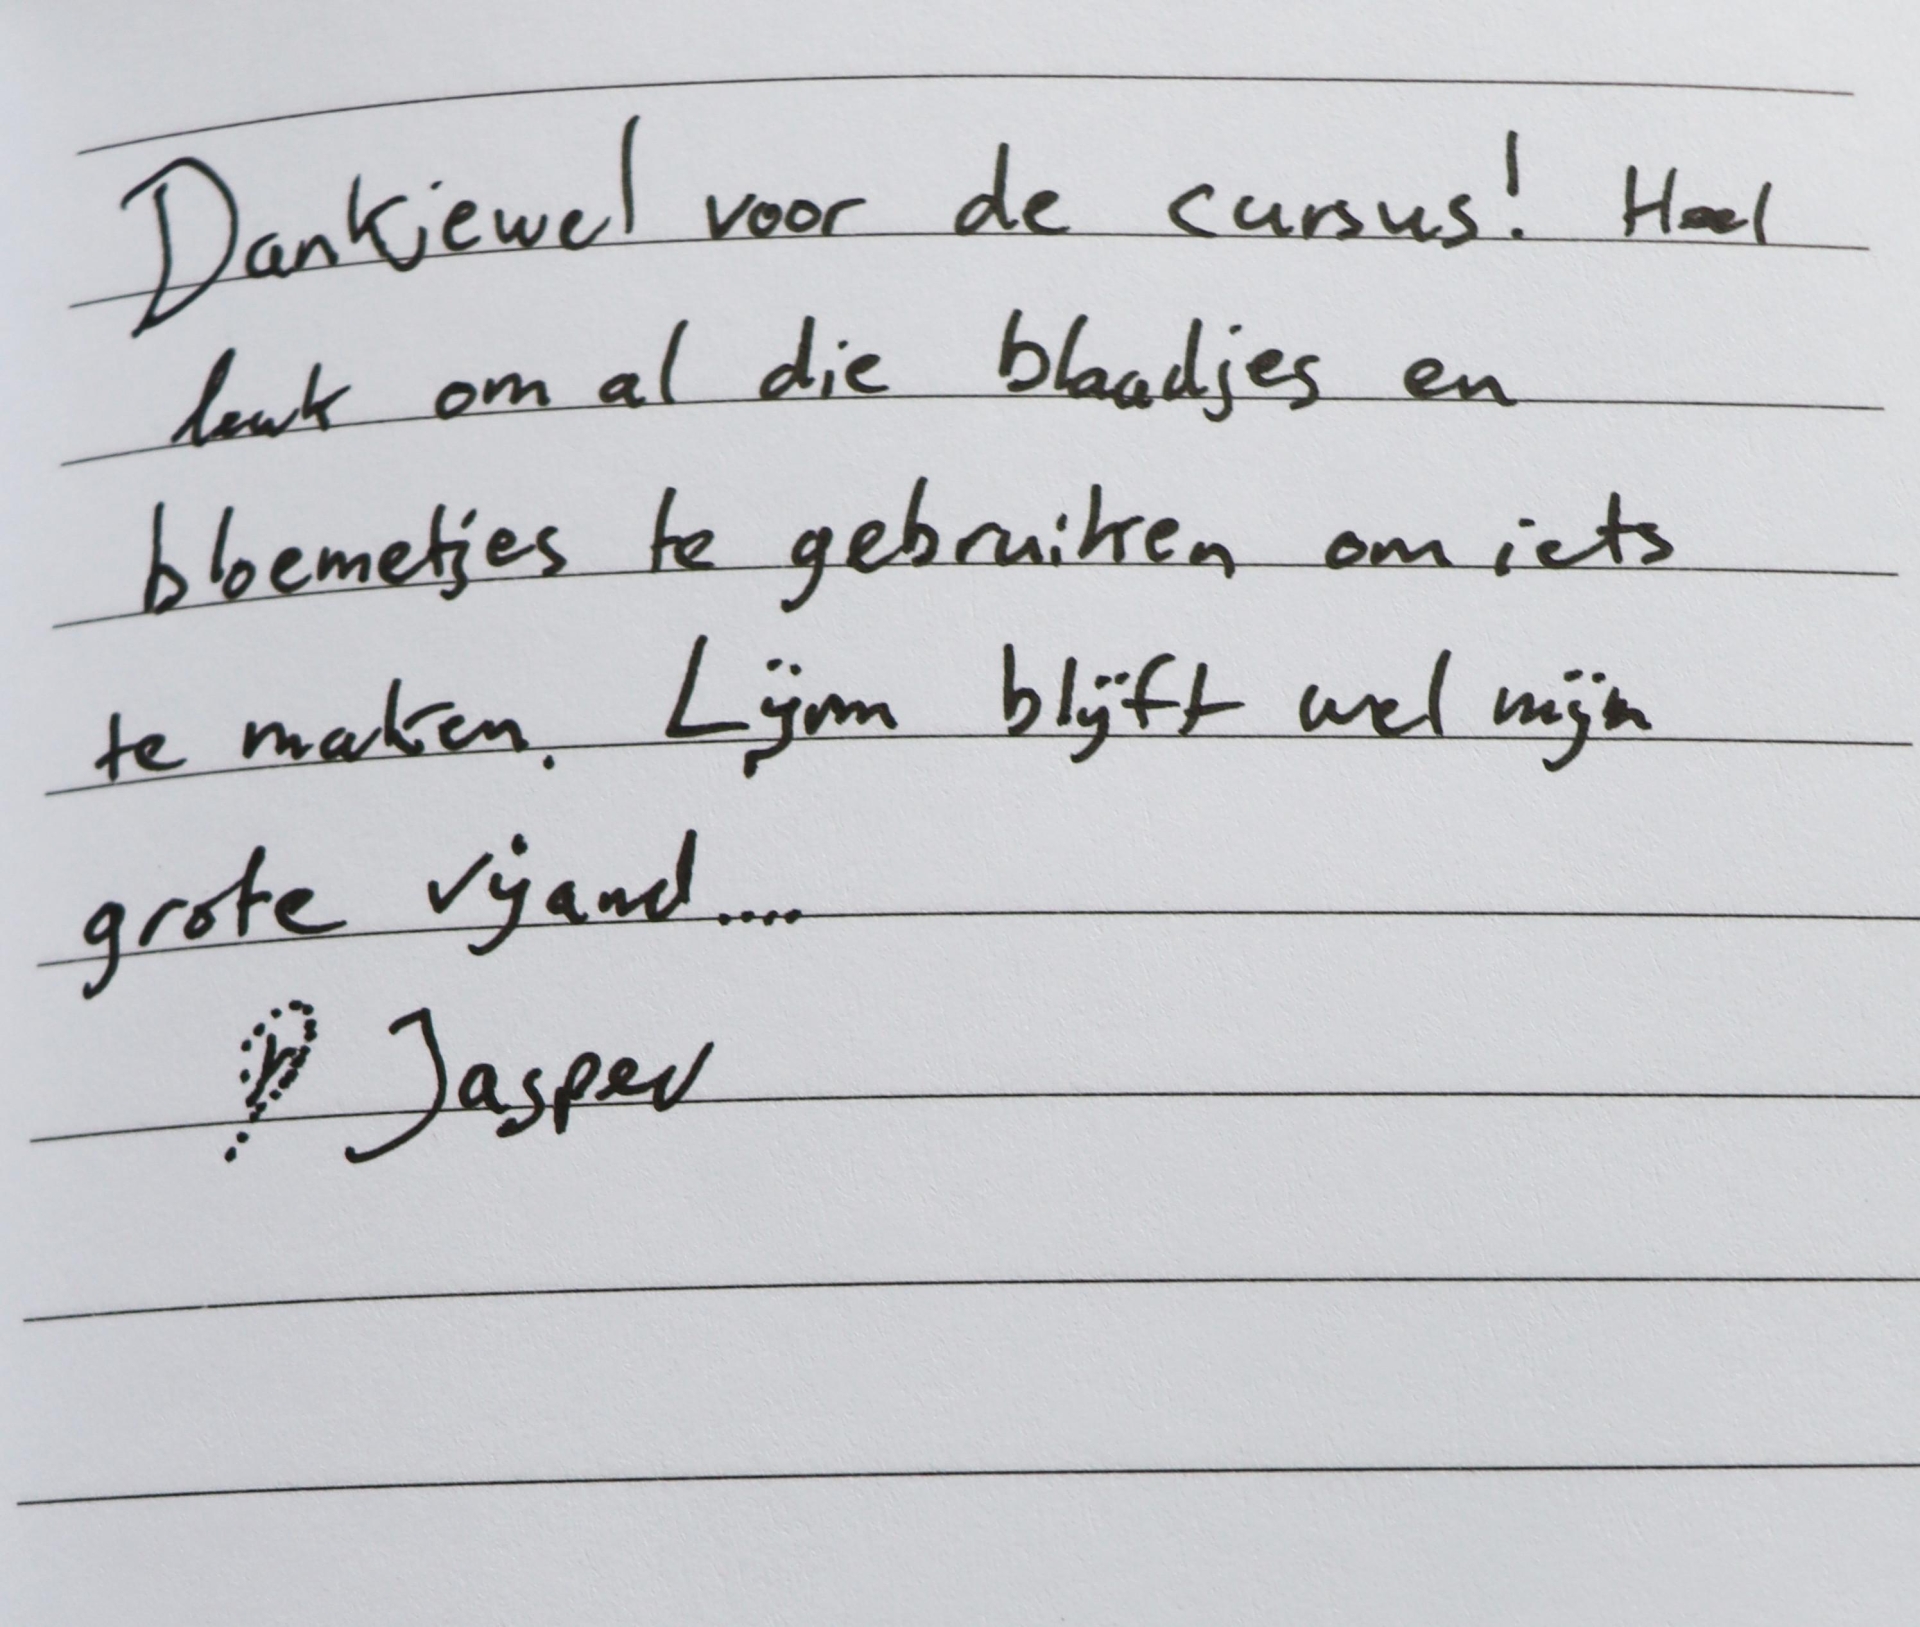 Dankjewel voor de cursus! Heel
leuk om al die blaadjes en
bloemetjes te gebruiken om iets
te maken. Lijm blijft wel mijn
grote vijand....
Jasper